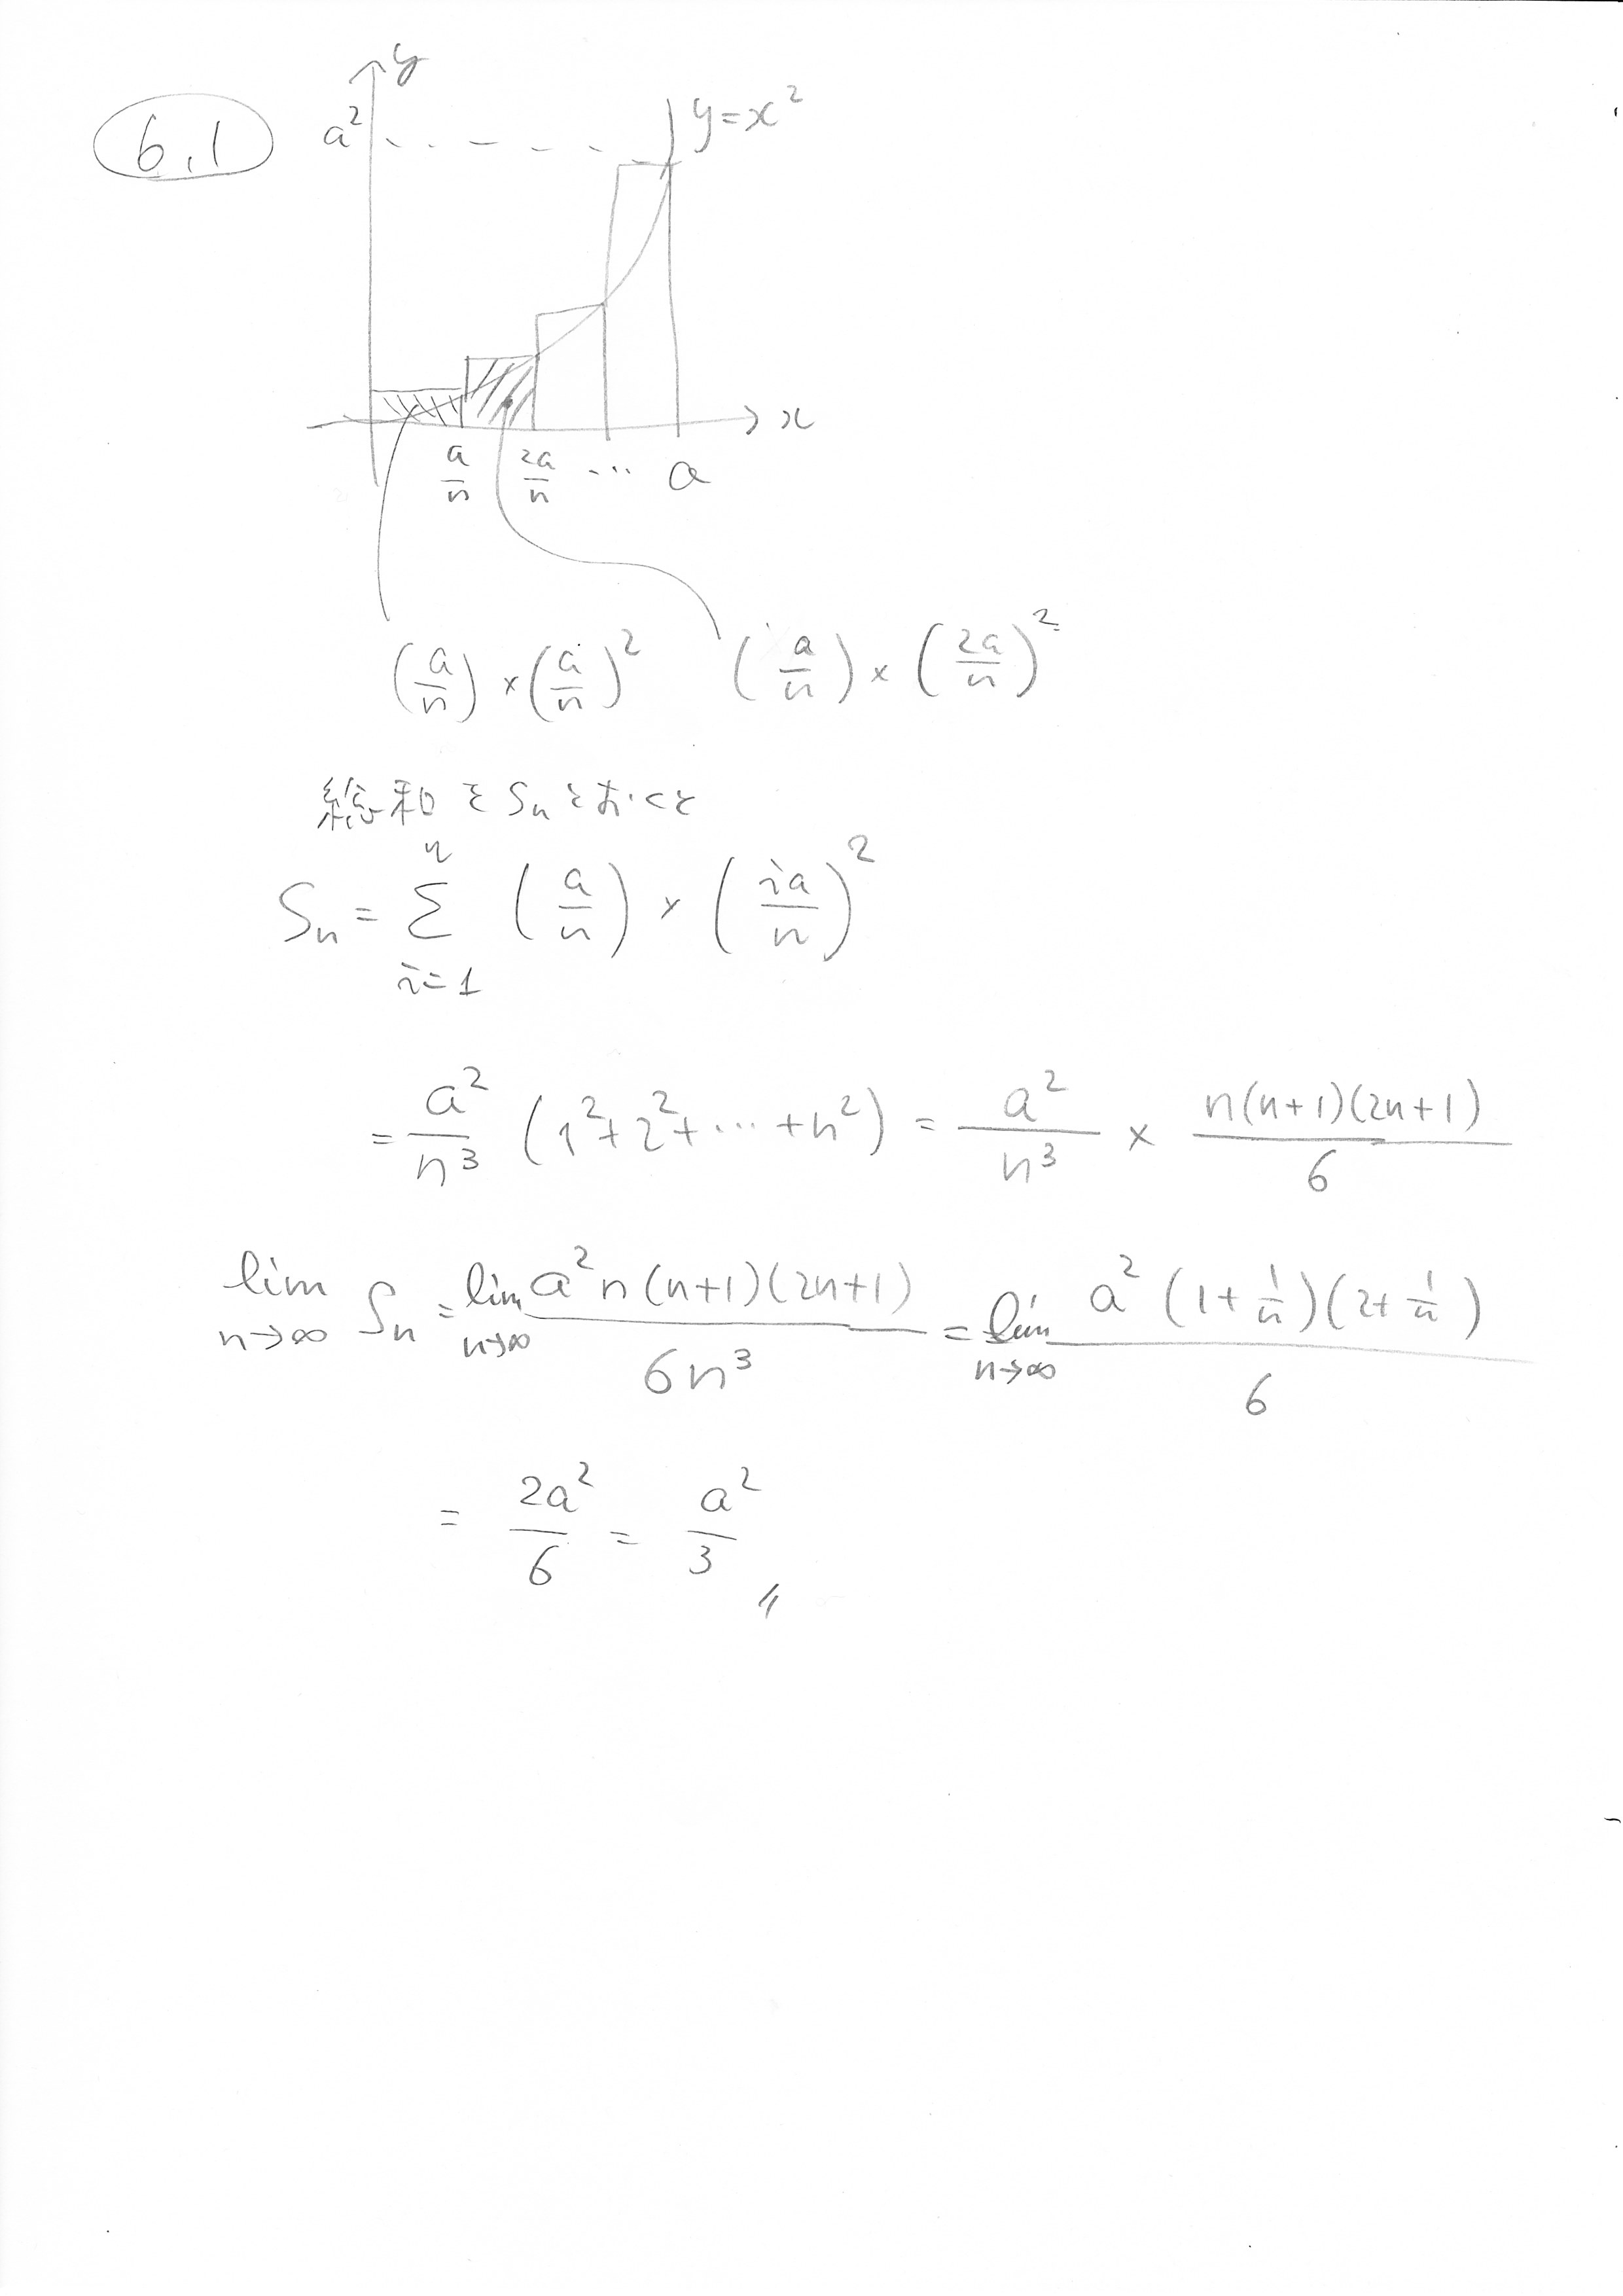 6.1
y
a² y=x²
x
a/n 2a/n ... a
(a/n)×(a/n)² (a/n)×(2a/n)²
総和をSnとおくと
Sn = Σ_{i=1}^{n} (a/n)×(ia/n)²
= a²/n³ (1²+2²+⋯+n²) = a²/n³ × n(n+1)(2n+1)/6
lim_{n→∞} Sn = lim_{n→∞} a²n(n+1)(2n+1)/6n³ = lim_{n→∞} a²(1+1/n)(2+1/n)/6
= 2a²/6 = a²/3